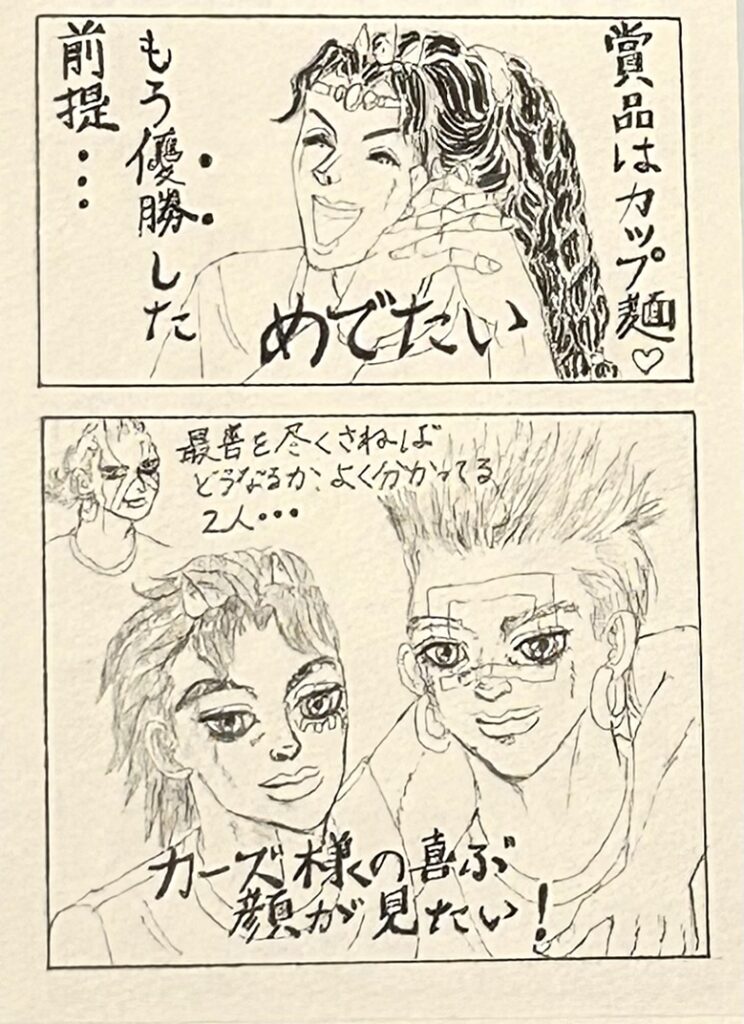 賞品はカップ麺♡
もう優勝した
前提・・・
めでたい
最善を尽くさねば
どうなるか、よく分かってる
2人・・・
カーズ様の喜ぶ
顔が見たい!